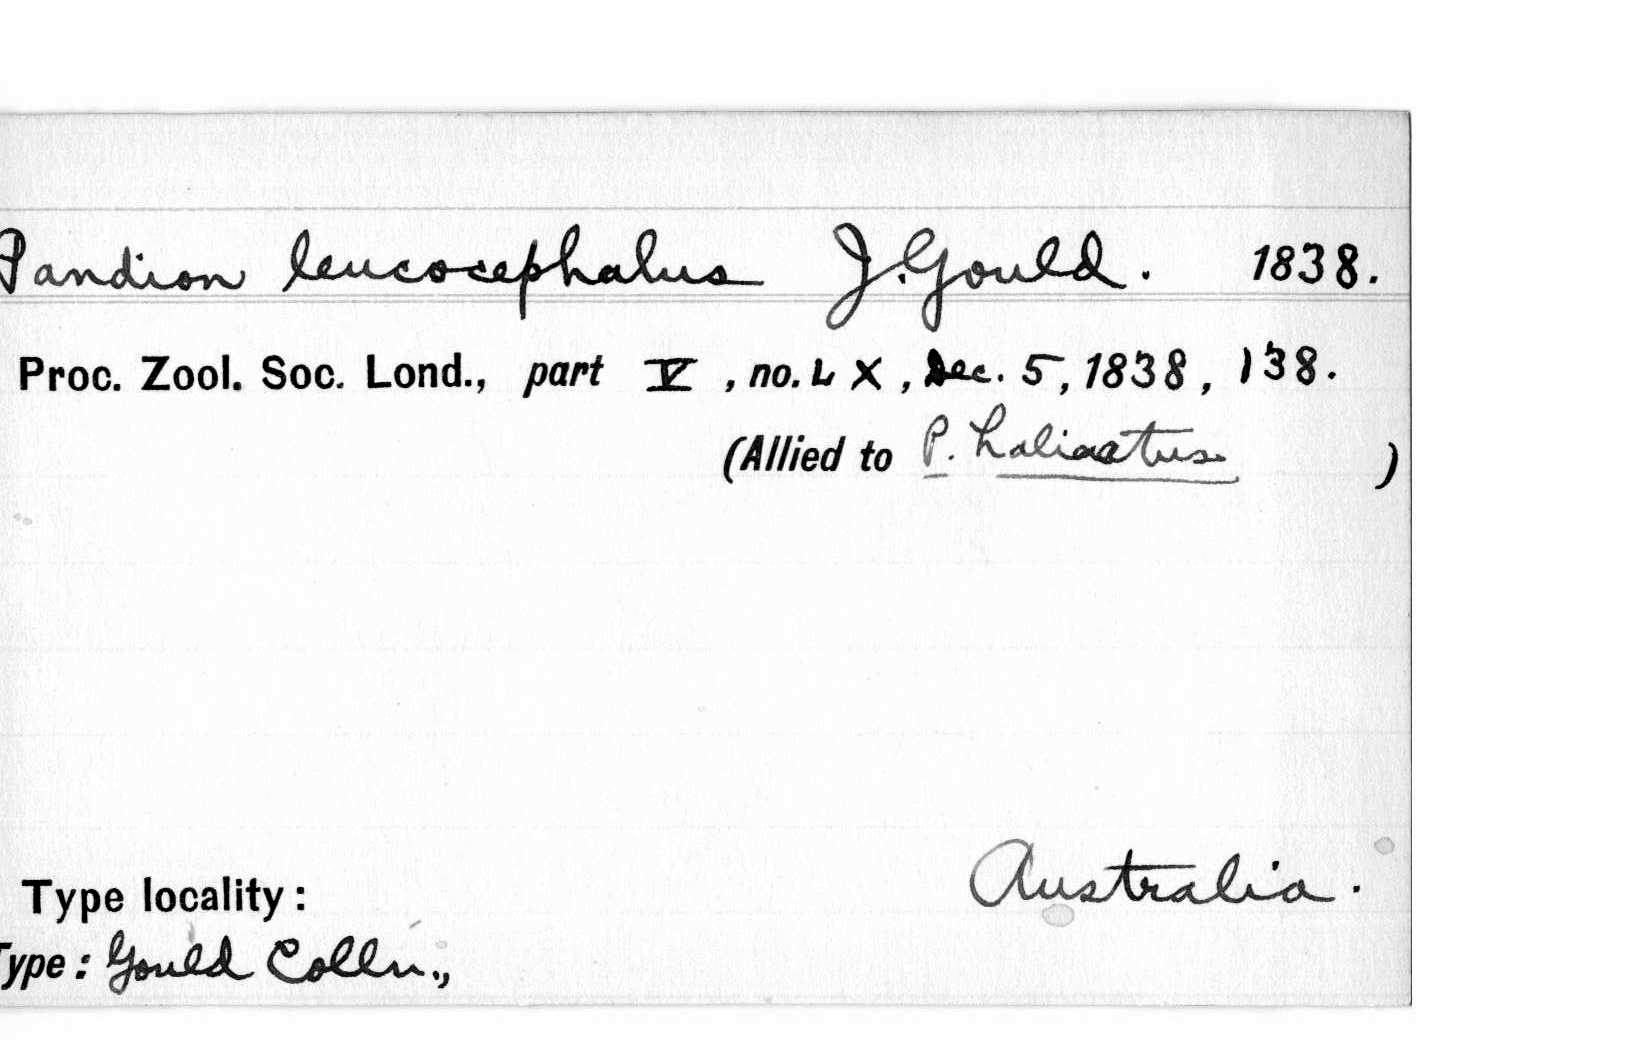 Pandion leucocephalus J. Gould. 1838.
Proc. Zool. Soc. Lond., part V, no. LX, Dec. 5, 1838, 138.
(Allied to P. haliaetus )
Australia.
Type locality:
Type: Gould Colln.,